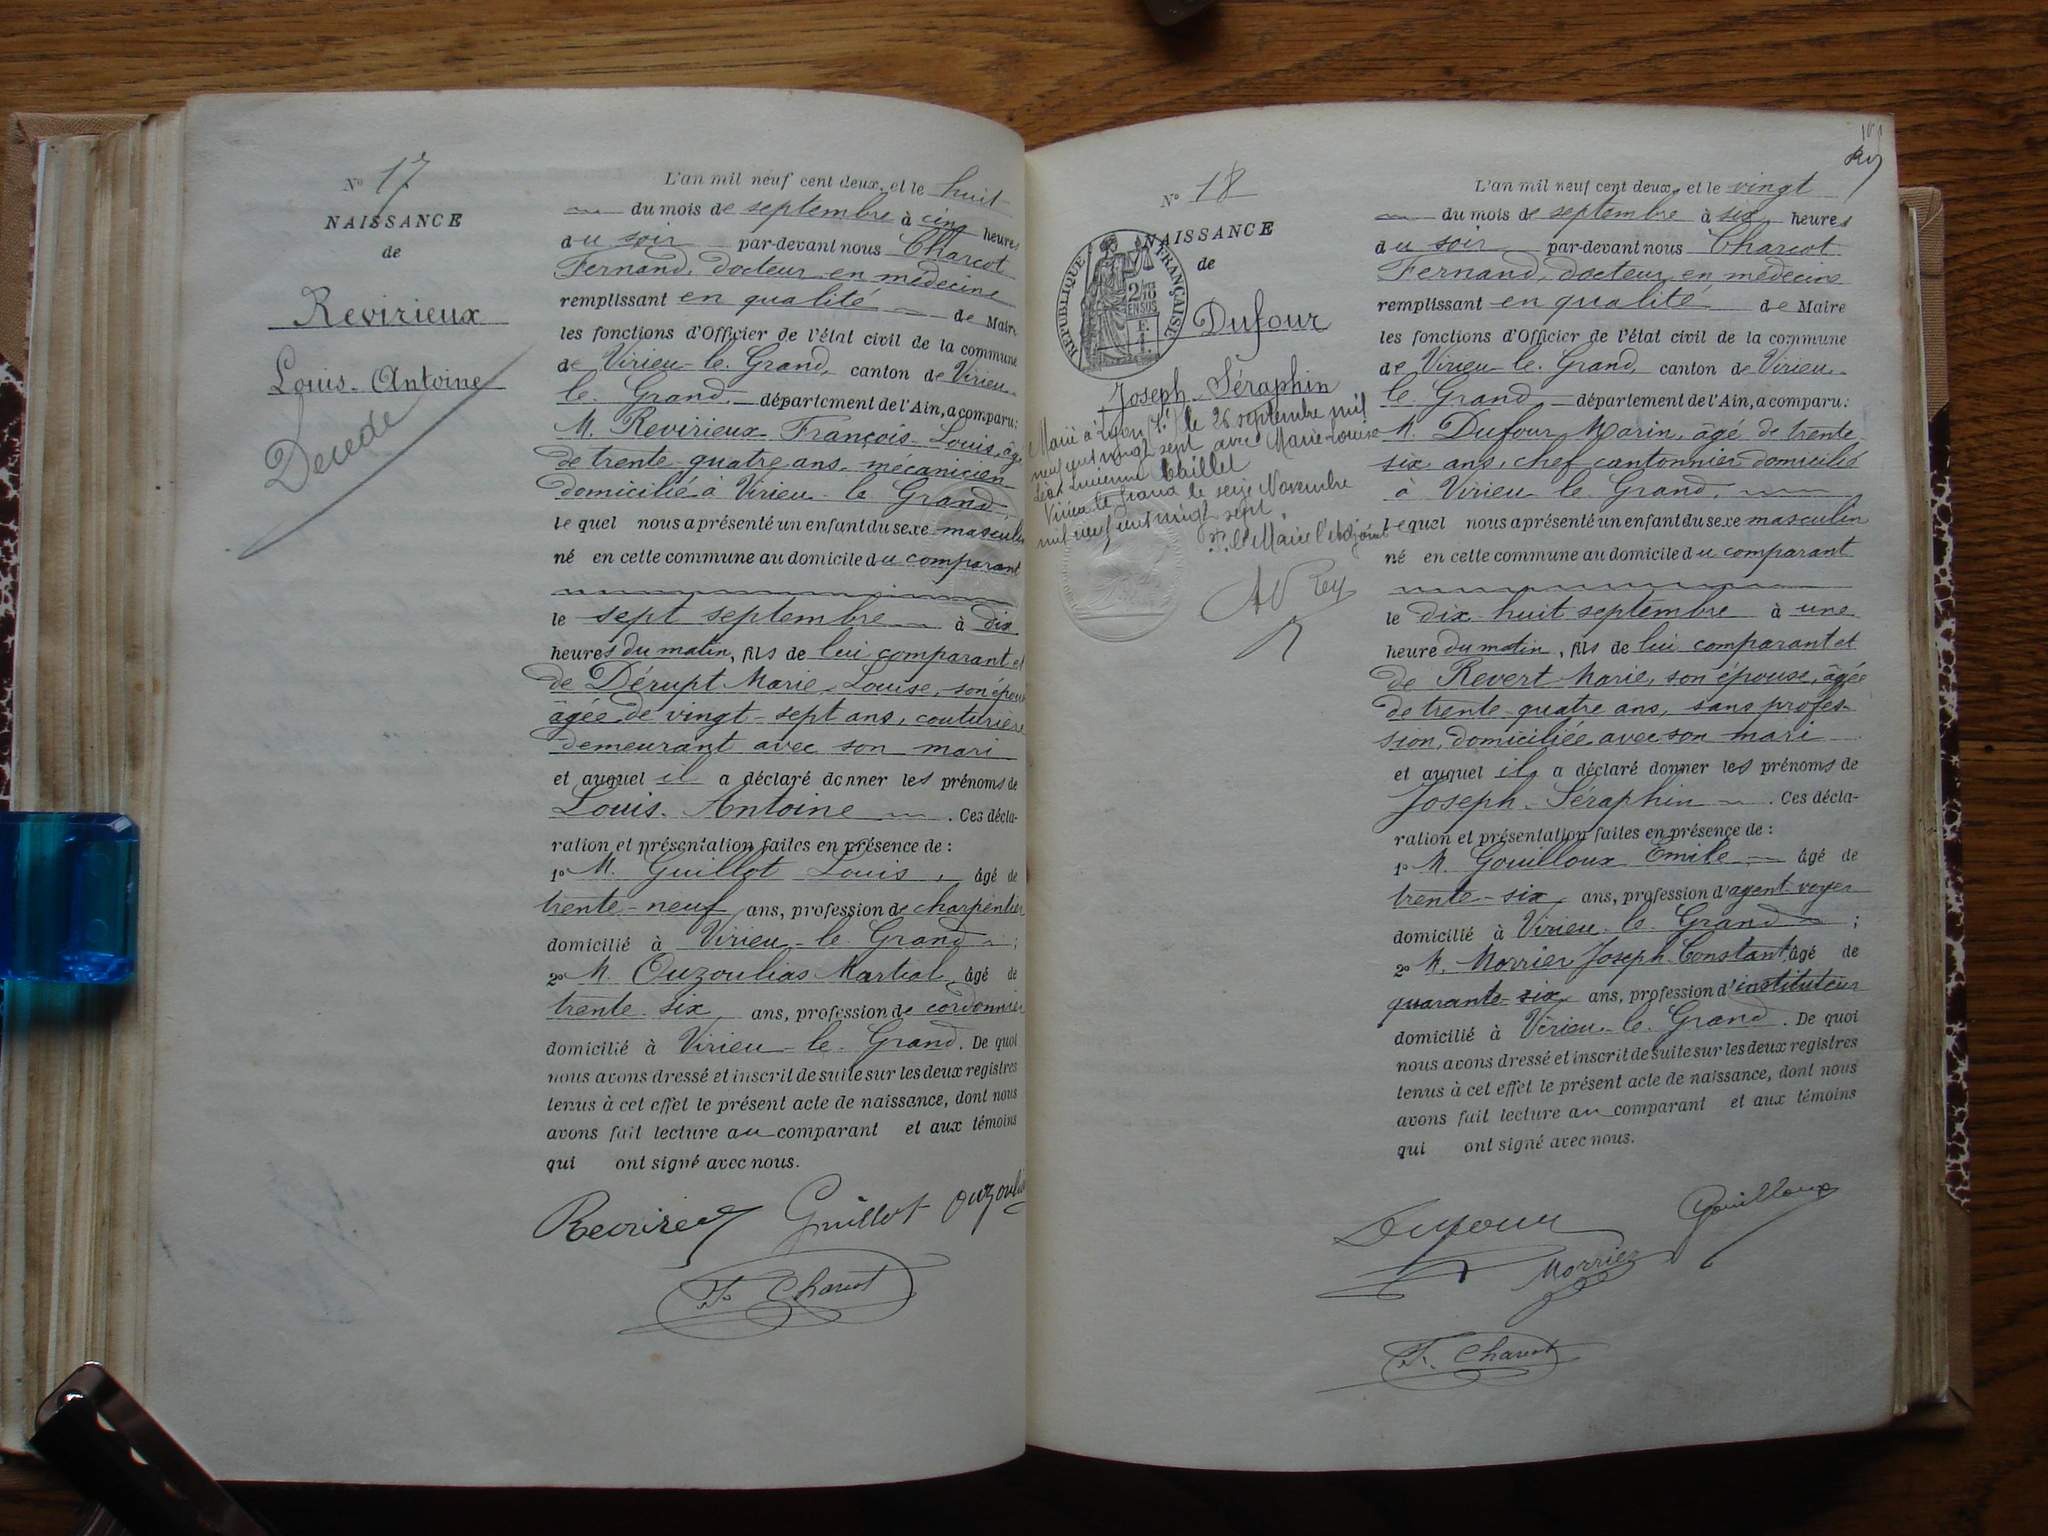 N° 17
NAISSANCE
de
Revirieux
Louis-Antoine
Décédé
L'an mil neuf cent deux, et le huit
du mois de septembre à cinq heures
du soir par-devant nous Charcot
Fernand, docteur en médecine
remplissant en qualité de Maire
les fonctions d'Officier de l'état civil de la commune
de Virieu-le-Grand, canton de Virieu-
le-Grand département de l'Ain, a comparu:
M. Revirieux François-Louis, âgé
de trente-quatre ans, mécanicien
domicilié à Virieu-le-Grand,
lequel nous a présenté un enfant du sexe masculin
né en cette commune au domicile du comparant
le sept septembre à dix
heures du matin, fils de lui comparant et
de Dérupt Marie-Louise, son épouse
âgée de vingt-sept ans, couturière
demeurant avec son mari
et auquel il a déclaré donner les prénoms de
Louis-Antoine. Ces décla-
ration et présentation faites en présence de :
1° M. Guillot Louis, âgé de
trente-neuf ans, profession de charpentier
domicilié à Virieu-le-Grand ;
2° M. Ouzoulias Martial, âgé de
trente-six ans, profession de cordonnier
domicilié à Virieu-le-Grand. De quoi
nous avons dressé et inscrit de suite sur les deux registres
tenus à cet effet le présent acte de naissance, dont nous
avons fait lecture au comparant et aux témoins
qui ont signé avec nous.
Revirieux Guillot Ouzoulias
F. Charcot
N° 18
NAISSANCE
de
RÉPUBLIQUE FRANÇAISE
2/10
EN SUS
Dufour
Joseph-Séraphin
Marié à Lyon le 26 septembre mil
neuf cent vingt sept avec Marie-Louise
Lucienne
Virieu le Grand le seize Novembre
mil neuf cent vingt sept
P. le Maire l'adjoint
Rey
L'an mil neuf cent deux, et le vingt
du mois de septembre à six heures
du soir par-devant nous Charcot
Fernand, docteur en médecine
remplissant en qualité de Maire
les fonctions d'Officier de l'état civil de la commune
de Virieu-le-Grand, canton de Virieu-
le-Grand département de l'Ain, a comparu:
M. Dufour Marin, âgé de trente-
six ans, chef cantonnier domicilié
à Virieu-le-Grand,
lequel nous a présenté un enfant du sexe masculin
né en cette commune au domicile du comparant
le dix-huit septembre à une
heure du matin, fils de lui comparant et
de Revert Marie, son épouse, âgée
de trente-quatre ans, sans profes-
sion, domiciliée avec son mari
et auquel il a déclaré donner les prénoms de
Joseph-Séraphin. Ces décla-
ration et présentation faites en présence de :
1° M. Gouilloux Emile âgé de
trente-six ans, profession d'agent-voyer
domicilié à Virieu-le-Grand ;
2° M. Morrier Joseph-Constant, âgé de
quarante-six ans, profession d'instituteur
domicilié à Virieu-le-Grand. De quoi
nous avons dressé et inscrit de suite sur les deux registres
tenus à cet effet le présent acte de naissance, dont nous
avons fait lecture au comparant et aux témoins
qui ont signé avec nous.
Dufour Gouilloux
Morrier
F. Charcot